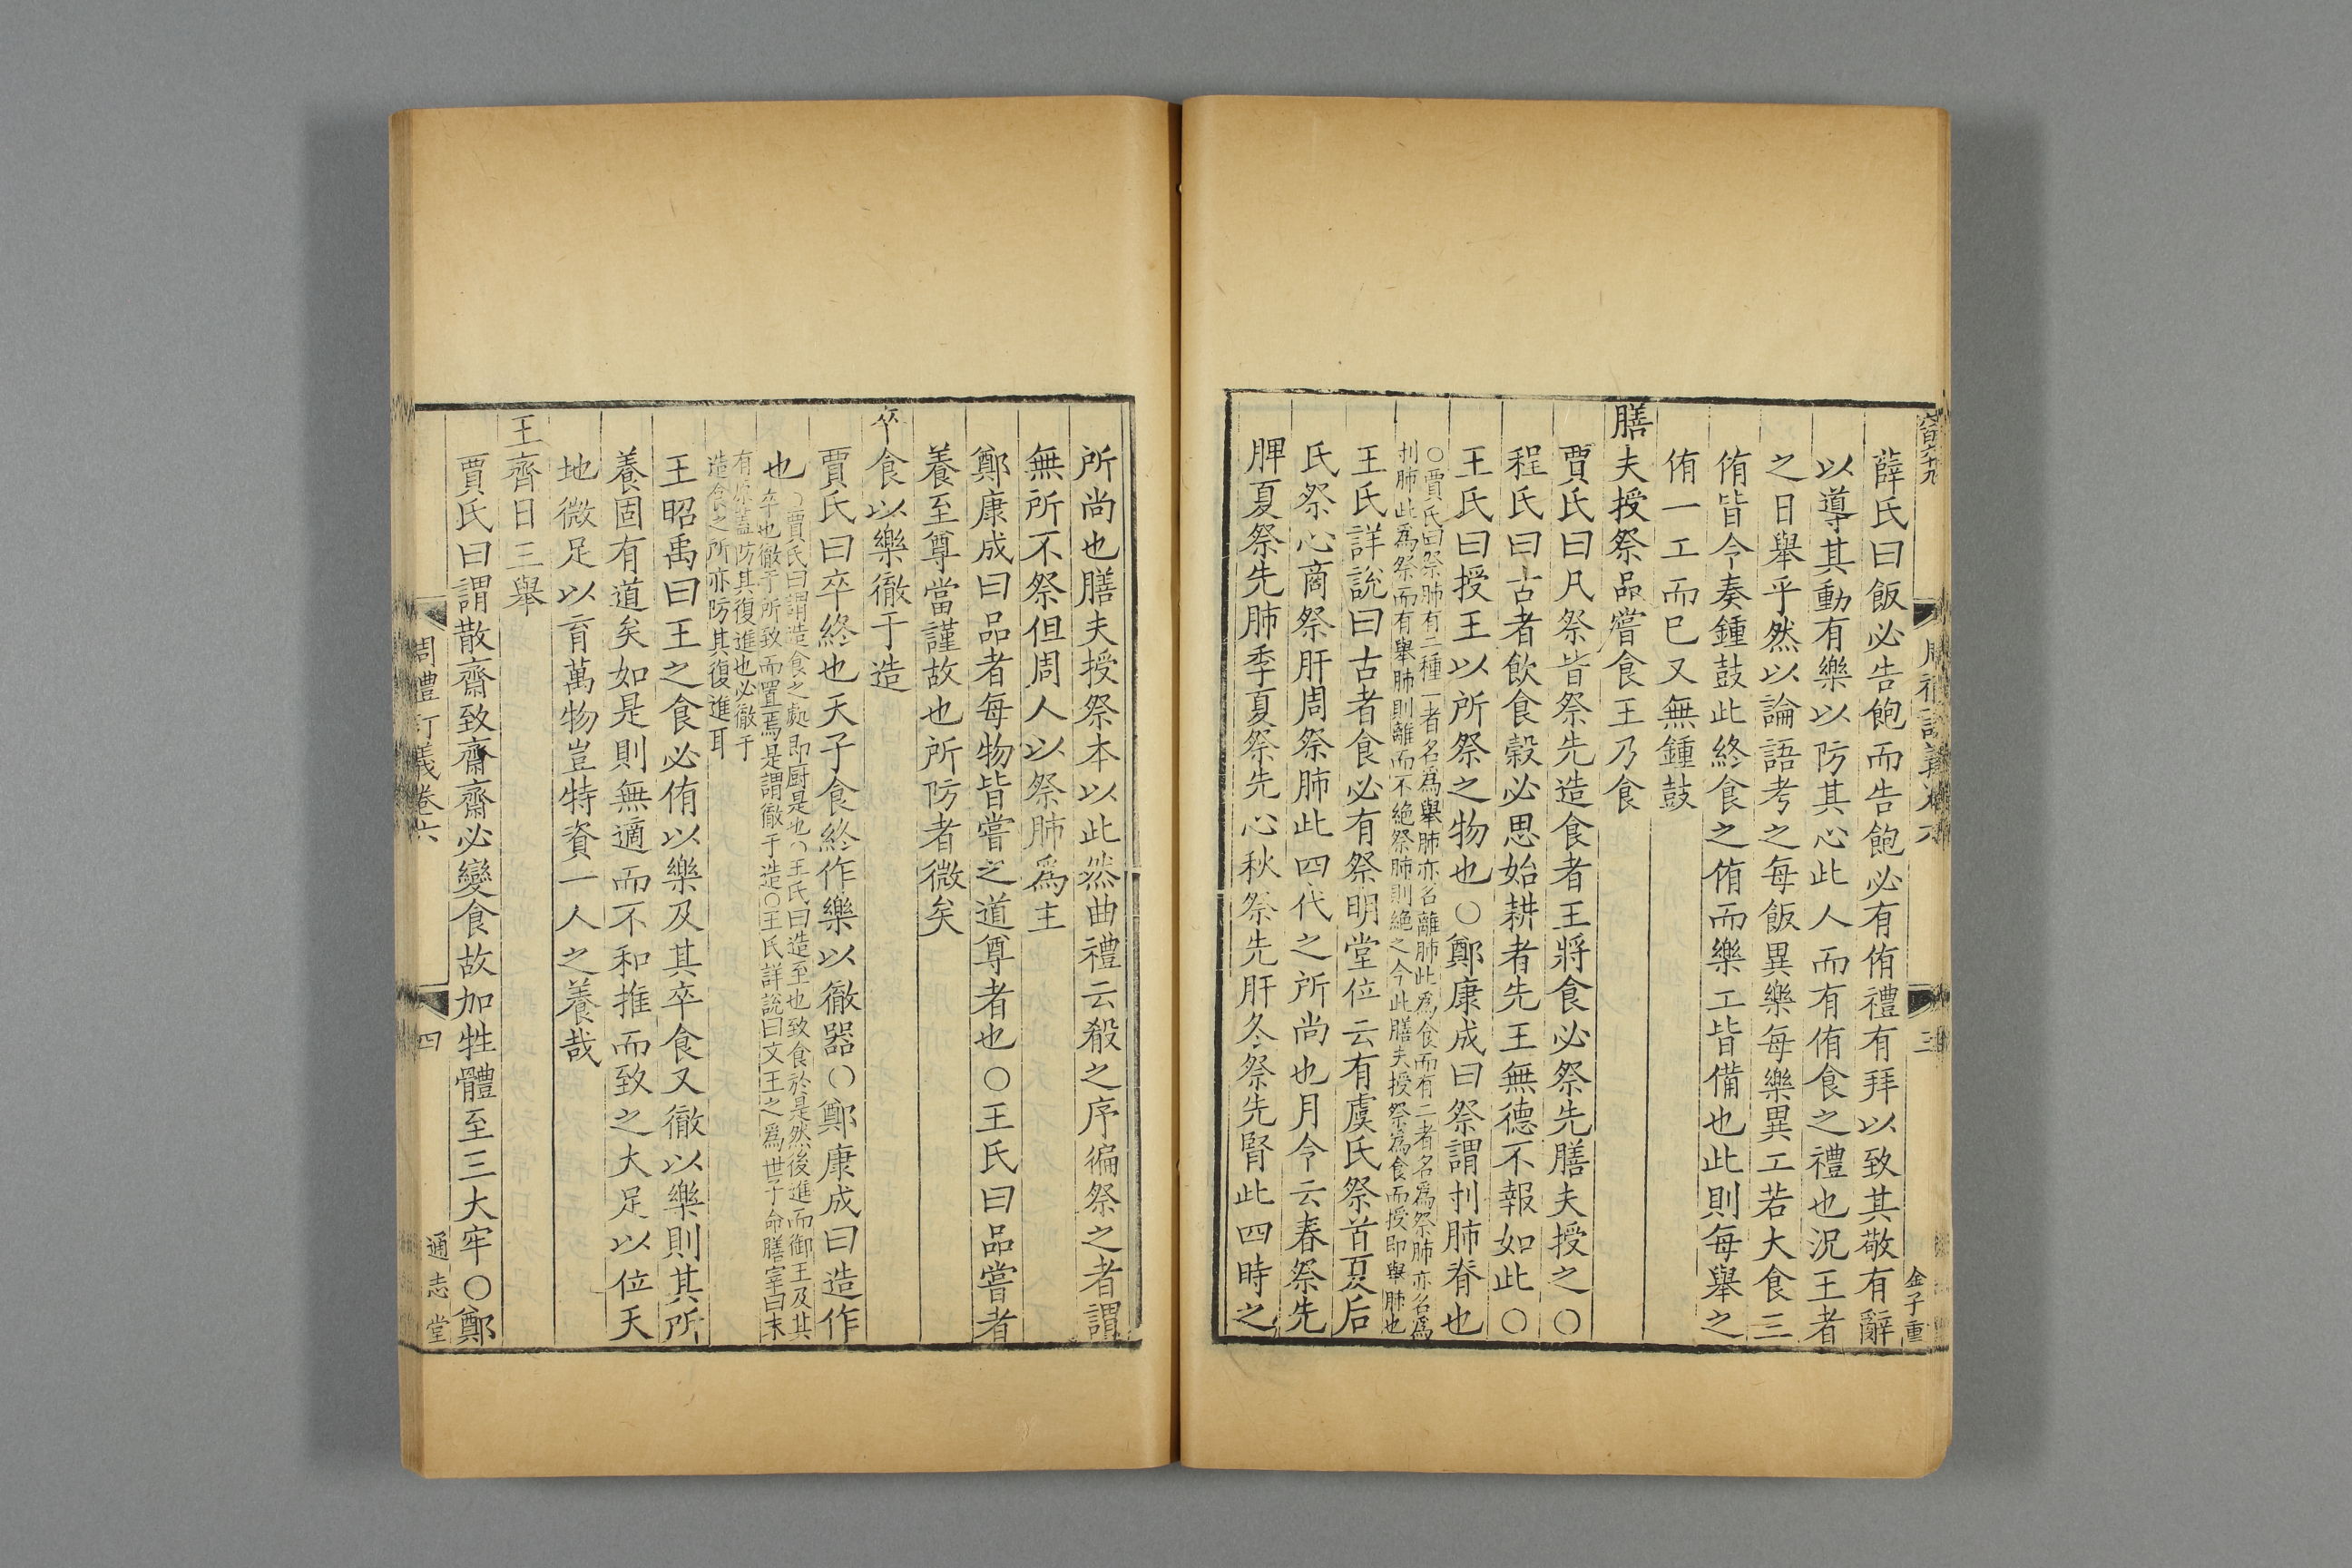 薛氏曰飯必告飽而告飽必有侑禮有拜以致其敬有辭
以導其動有樂以防其心此人而有侑食之禮也況王者
之日舉乎然以論語考之每飯異樂每樂異工若大食三
侑皆令奏鍾鼓此終食之侑而樂工皆備也此則每舉之
侑一工而已又無鍾鼓
膳夫授祭品嘗食王乃食
賈氏曰凡祭皆祭先造食者王將食必祭先膳夫授之○
程氏曰古者飲食穀必思始耕者先王無德不報如此○
王氏曰授王以所祭之物也○鄭康成曰祭謂刌肺脊也
○賈氏曰祭肺有二種一者名爲舉肺亦名離肺此爲食而有二者名爲祭肺亦名爲
刌肺此爲祭而有舉肺則離而不絶祭肺則絶之今此膳夫授祭爲食而授即舉肺也
王氏詳說曰古者食必有祭明堂位云有虞氏祭首夏后
氏祭心商祭肝周祭肺此四代之所尚也月令云春祭先
脾夏祭先肺季夏祭先心秋祭先肝冬祭先腎此四時之
三
金子重
所尚也膳夫授祭本以此然曲禮云殽之序徧祭之者謂
無所不祭但周人以祭肺爲主
鄭康成曰品者每物皆嘗之道尊者也○王氏曰品嘗者
養至尊當謹故也所防者微矣
卒食以樂徹于造
賈氏曰卒終也天子食終作樂以徹器○鄭康成曰造作
也
○賈氏曰謂造食之處即厨是也○王氏曰造至也致食於是然後進而御王及其
卒也徹于所致而置焉是謂徹于造○王氏詳說曰文王之爲世子命膳宰曰末
有原蓋防其復進也必徹于
造食之所亦防其復進耳
王昭禹曰王之食必侑以樂及其卒食又徹以樂則其所
養固有道矣如是則無適而不和推而致之大足以位天
地微足以育萬物豈特資一人之養哉
王齊日三舉
賈氏曰謂散齋致齋齋必變食故加牲體至三大牢○鄭
周禮訂義卷六
四
通志堂